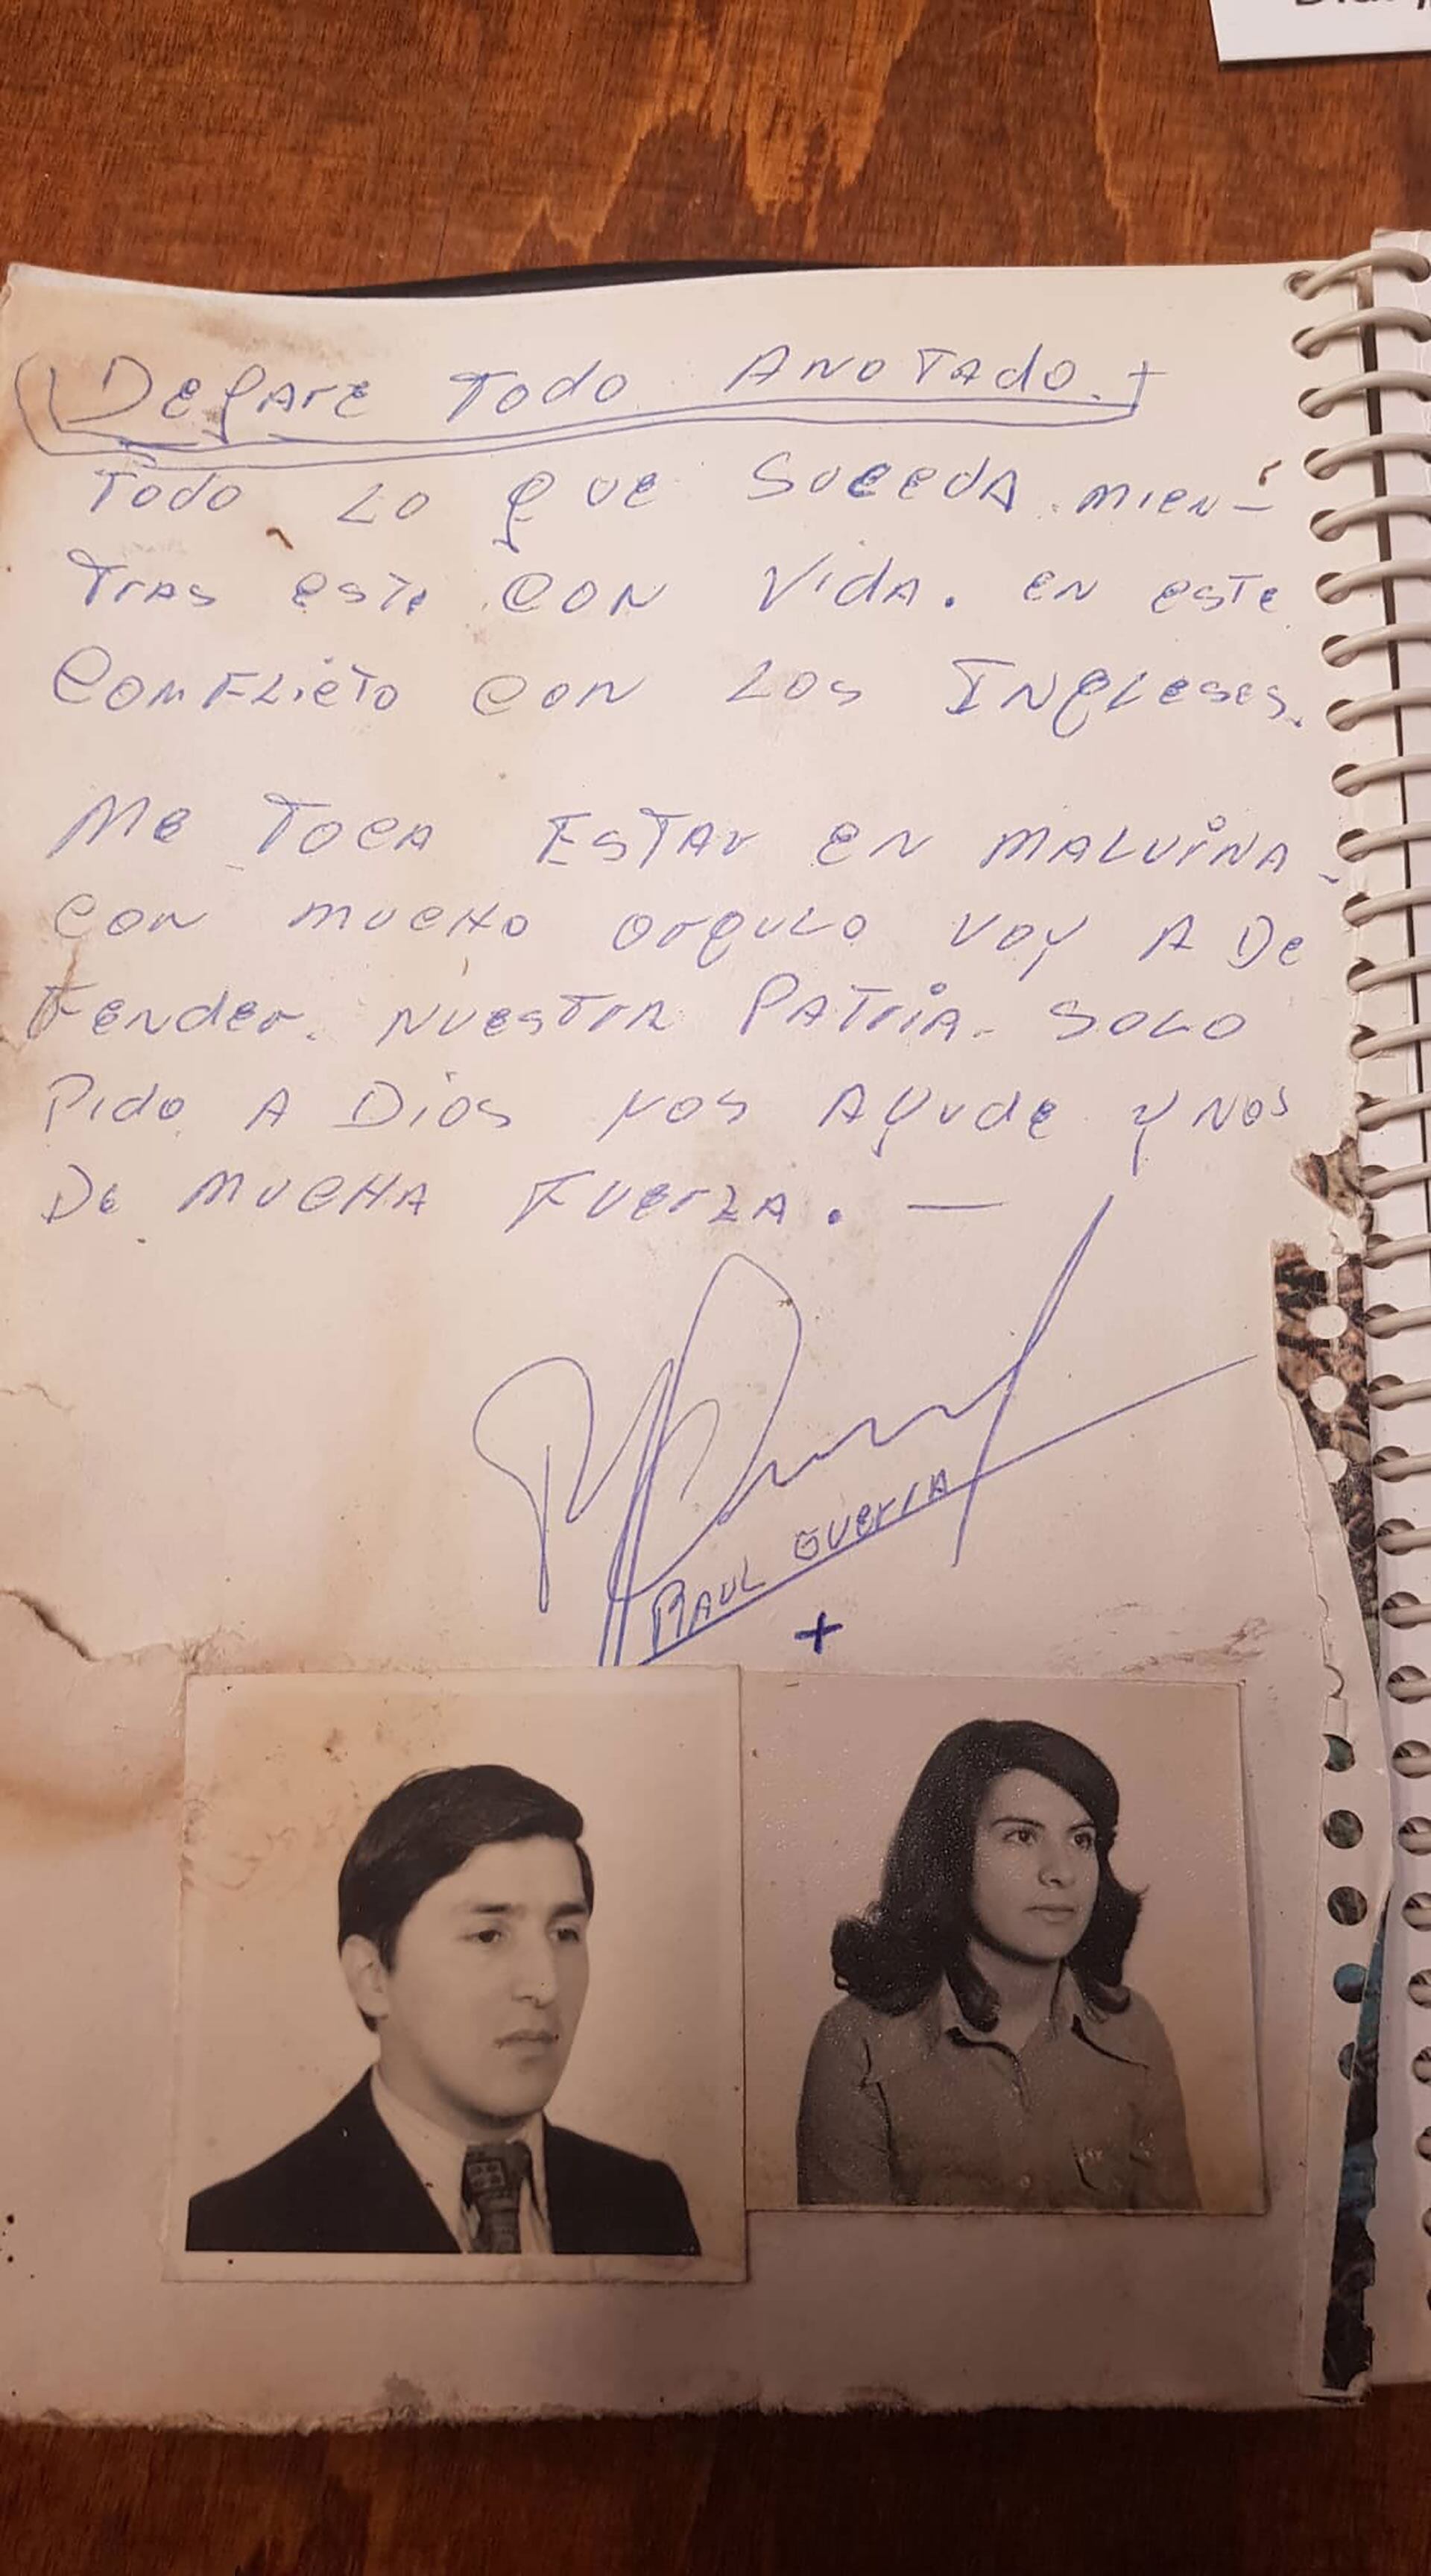 Degare Todo Anotado.+
Todo Lo que Suceda mien-
Tras este con vida. en este
Comflicto con Los Ingleses.
Me Toca Estar en Malvina-
con mucho orgulo voy a De
Fender. nuestra Patria- solo
Pido A Dios nos Ayude y nos
De mucha Fuerza. —
Raul Guerra
+